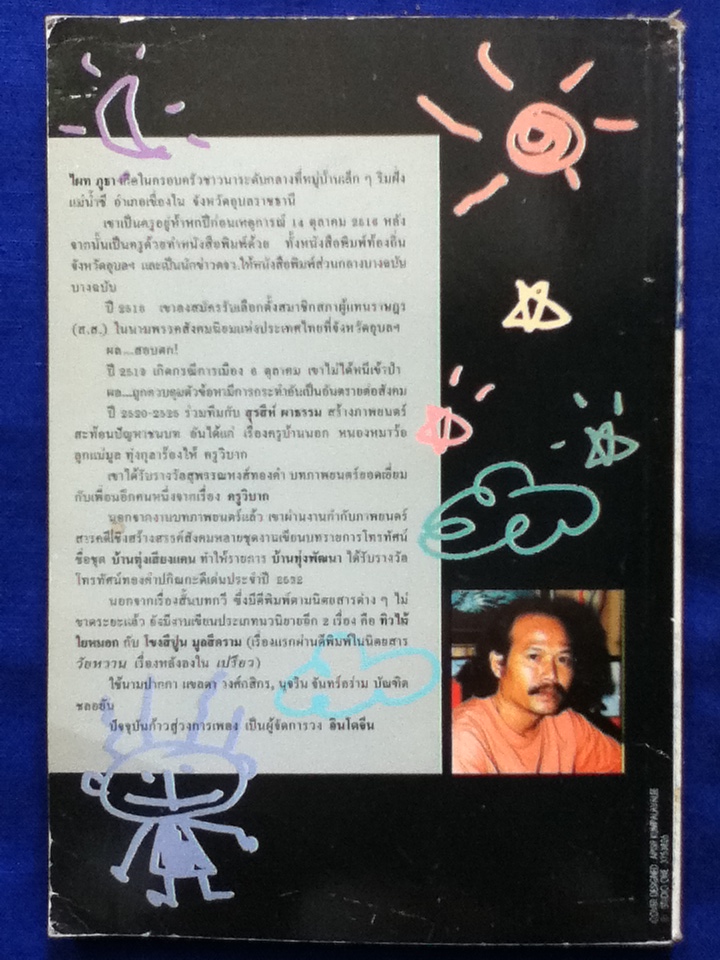 ไผท ภูธา เกิดในครอบครัวชาวนาระดับกลางที่หมู่บ้านเล็ก ๆ ริมฝั่ง
แม่น้ำชี อำเภอเขื่องใน จังหวัดอุบลราชธานี
เขาเป็นครูอยู่ห้าหกปีก่อนเหตุการณ์ 14 ตุลาคม 2516 หลัง
จากนั้นเป็นครูด้วยทำหนังสือพิมพ์ด้วย ทั้งหนังสือพิมพ์ท้องถิ่น
จังหวัดอุบลฯ และเป็นนักข่าวตจว.ให้หนังสือพิมพ์ส่วนกลางบางฉบับ
บางฉบับ
ปี 2518 เขาลงสมัครรับเลือกตั้งสมาชิกสภาผู้แทนราษฎร
(ส.ส.) ในนามพรรคสังคมนิยมแห่งประเทศไทยที่จังหวัดอุบลฯ
ผล...สอบตก!
ปี 2519 เกิดกรณีการเมือง 6 ตุลาคม เขาไม่ได้หนีเข้าป่า
ผล...ถูกควบคุมตัวข้อหามีการกระทำอันเป็นอันตรายต่อสังคม
ปี 2520-2525 ร่วมทีมกับ สุรสีห์ ผาธรรม สร้างภาพยนตร์
สะท้อนปัญหาชนบท อันได้แก่ เรื่องครูบ้านนอก หนองหมาว้อ
ลูกแม่มูล ทุ่งกุลาร้องไห้ ครูวิบาก
เขาได้รับรางวัลสุพรรณหงส์ทองคำ บทภาพยนตร์ยอดเยี่ยม
กับเพื่อนอีกคนหนึ่งจากเรื่อง ครูวิบาก
นอกจากงานบทภาพยนตร์แล้ว เขาผ่านงานกำกับภาพยนตร์
สารคดีเชิงสร้างสรรค์สังคมหลายชุดงานเขียนบทรายการโทรทัศน์
ชื่อชุด บ้านทุ่งเสียงแคน ทำให้รายการ บ้านทุ่งพัฒนา ได้รับรางวัล
โทรทัศน์ทองคำปกิณกะดีเด่นประจำปี 2532
นอกจากเรื่องสั้นบทกวี ซึ่งมีตีพิมพ์ตามนิตยสารต่าง ๆ ไม่
ขาดระยะแล้ว ยังมีงานเขียนประเภทนวนิยายอีก 2 เรื่อง คือ ทิวไม้
ใยหมอก กับ โขงสีปูน มูลสีคราม (เรื่องแรกผ่านตีพิมพ์ในนิตยสาร
วัยหวาน เรื่องหลังลงใน เปรียว)
ใช้นามปากกา แขลดา วงศ์กสิกร, นุจรีน จันทร์อร่าม บัณฑิต
ชลอยัน
ปัจจุบันก้าวสู่วงการเพลง เป็นผู้จัดการวง อินโดจีน
COVER DESIGNED
© STUDIO ONE